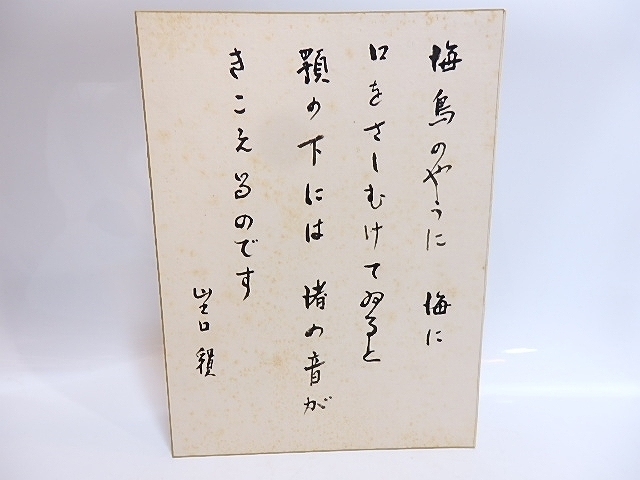 海鳥のやうに　海に
口をさしむけてゐると
顎の下には　渚の音が
きこえるのです
山之口　貘